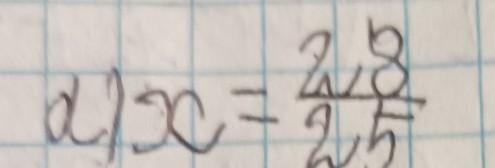 d) x = 2,8 / 2,5